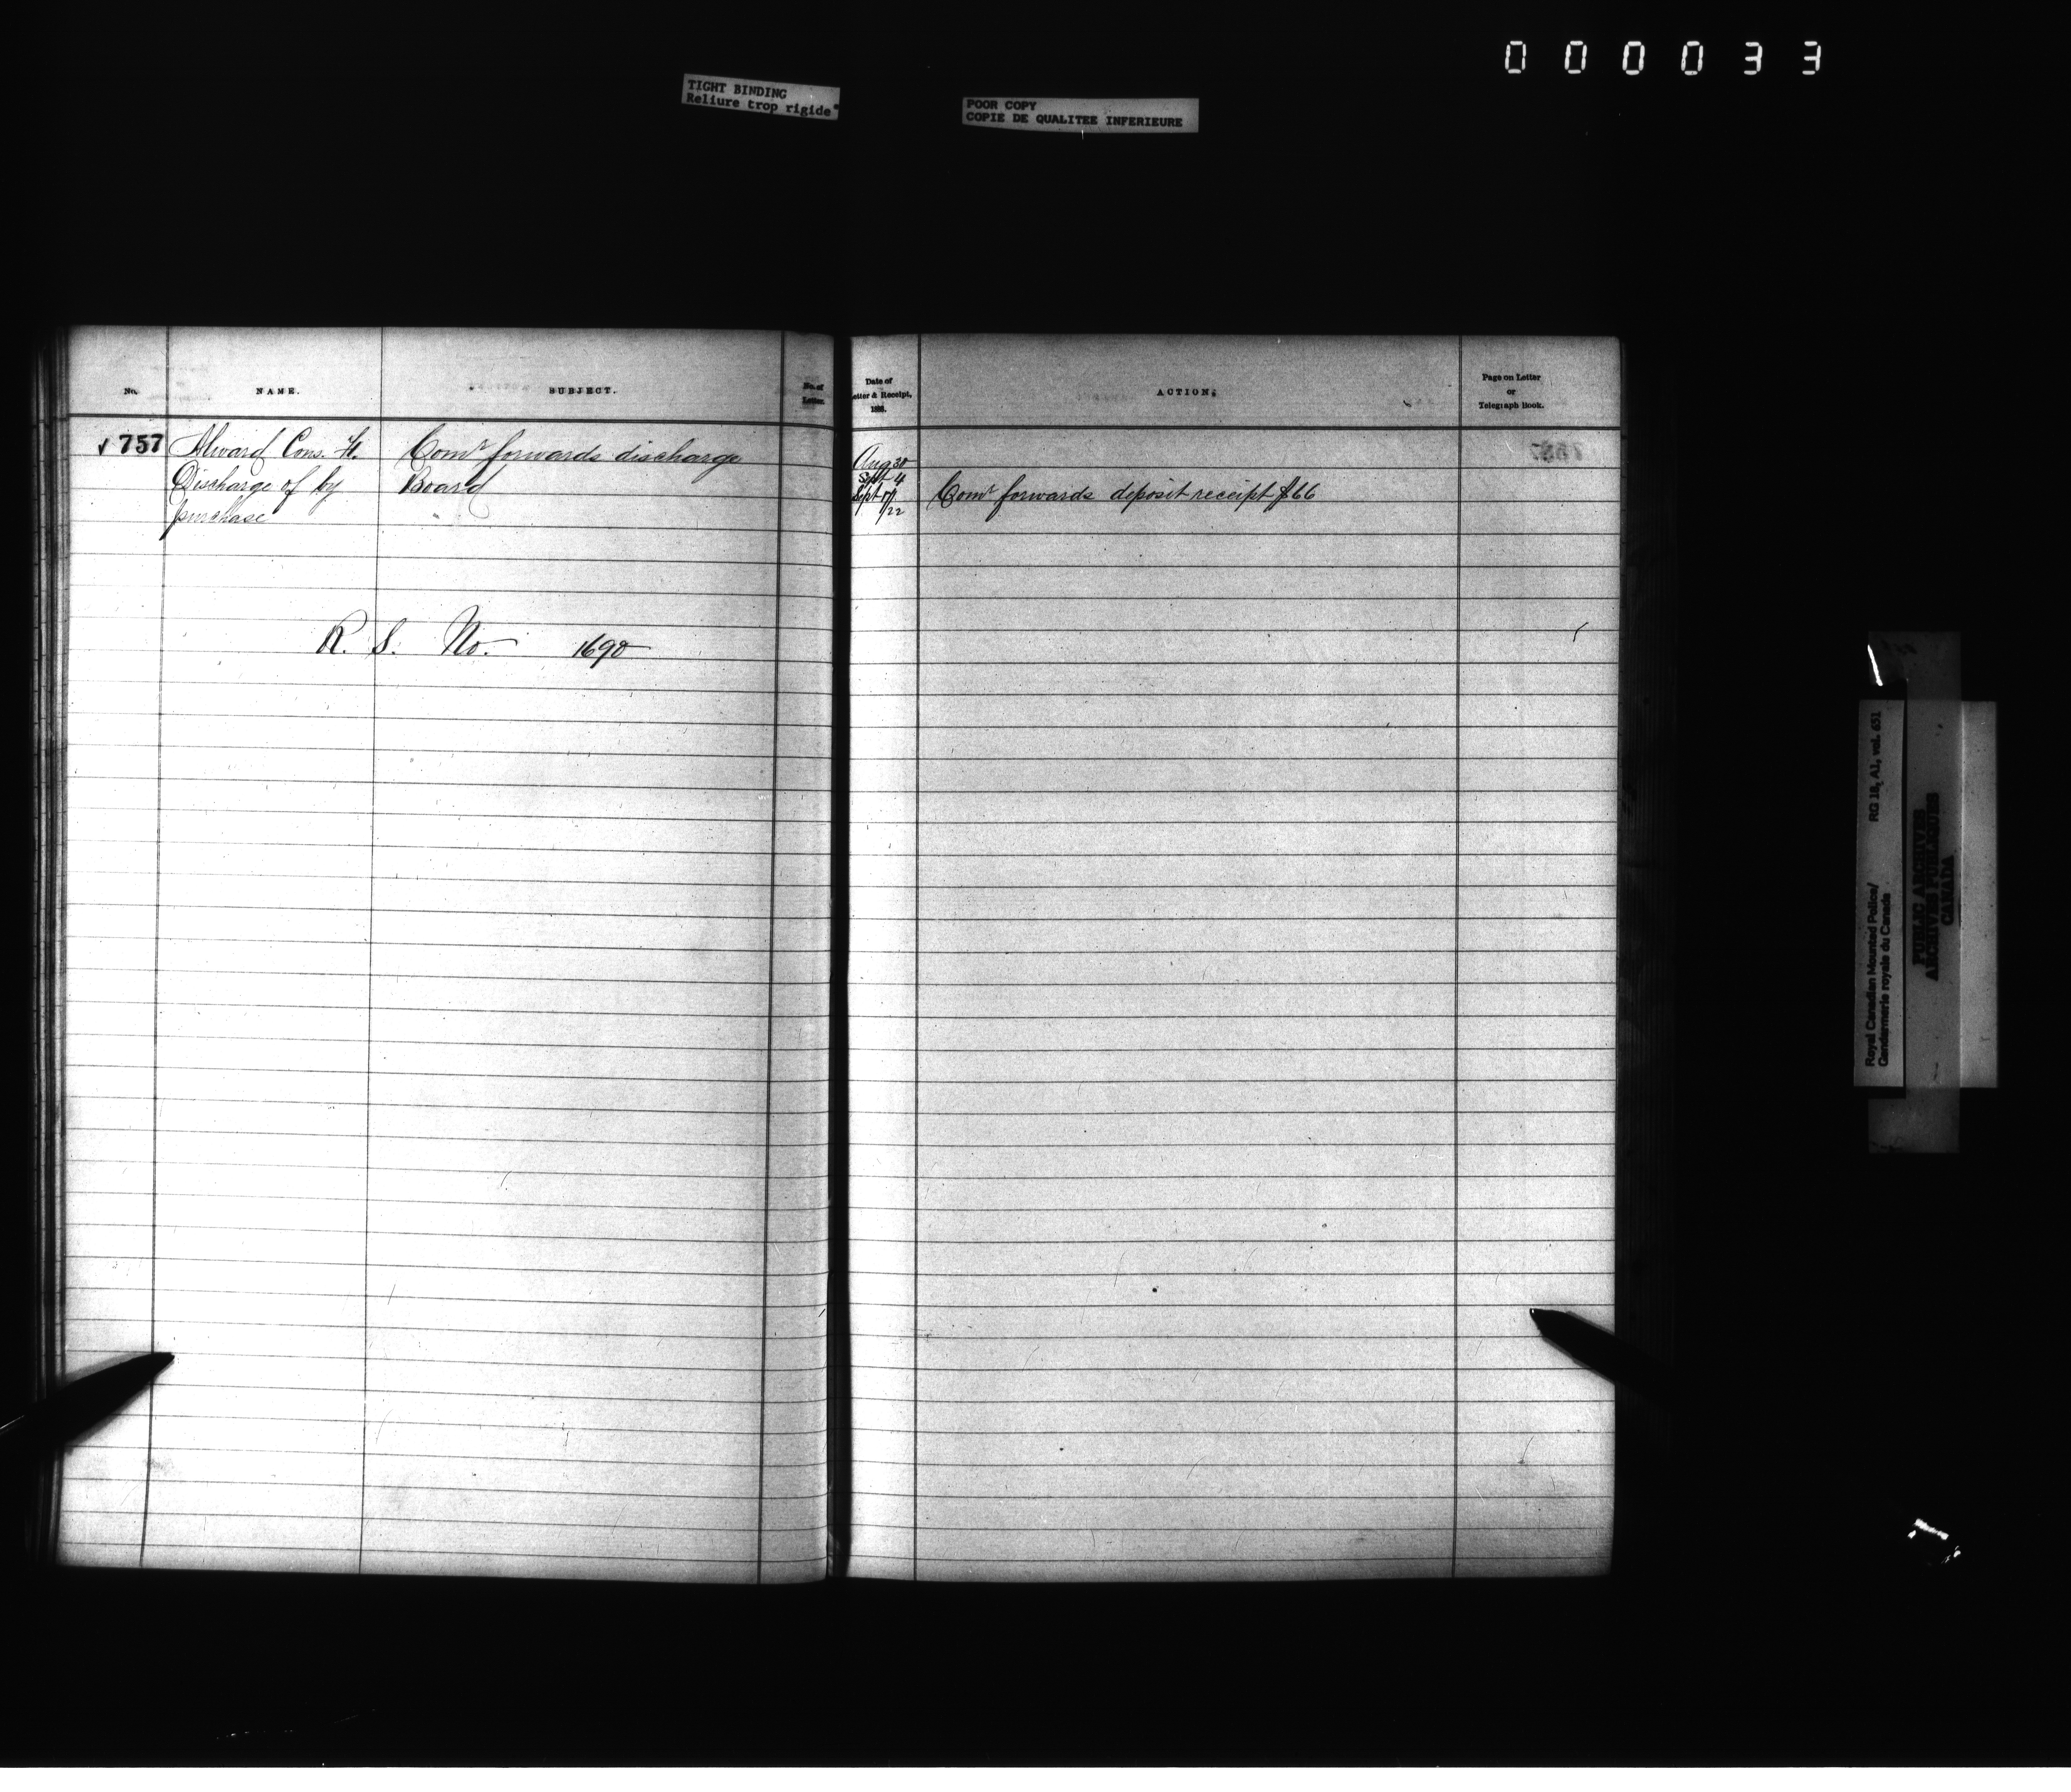 000033
TIGHT BINDING
Reliure trop rigide
POOR COPY
COPIE DE QUALITEE INFERIEURE
No.
NAME.
SUBJECT.
No. of
Letter.
Date of
Letter & Receipt,
188.
ACTION.
Page on Letter
or
Telegraph Book.
757 Alward Cons. H.
Discharge of by
purchase
Comr forwards discharge
Board
Aug 30
Sept 4
Sept 17/
/22
Comr forwards deposit receipt $66
R. S. No. 1690
RG 18, A1, vol. 651
Royal Canadian Mounted Police/
Gendarmerie royale du Canada
PUBLIC ARCHIVES
ARCHIVES PUBLIQUES
CANADA